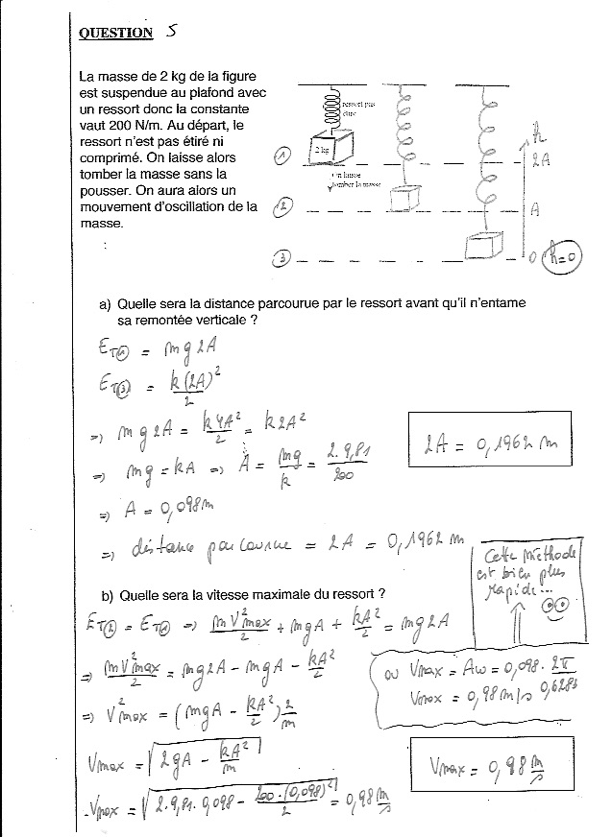 QUESTION 5
La masse de 2 kg de la figure
est suspendue au plafond avec
un ressort donc la constante
vaut 200 N/m. Au départ, le
ressort n'est pas étiré ni
comprimé. On laisse alors
tomber la masse sans la
pousser. On aura alors un
mouvement d'oscillation de la
masse.
ressort pas
étiré
2 kg
On laisse
tomber la masse
①
②
③
h
2A
A
0 h=0
a) Quelle sera la distance parcourue par le ressort avant qu'il n'entame
sa remontée verticale ?
E_T① = mg2A
E_T③ = k(2A)²/2
=> mg2A = k4A²/2 = k2A²
=> mg = kA => A = mg/k = 2.9,81/200
=> A = 0,098m
=> distance parcourue = 2A = 0,1962 m
2A = 0,1962 m
b) Quelle sera la vitesse maximale du ressort ?
E_T② = E_T① => mV²max/2 + mgA + kA²/2 = mg2A
=> mV²max/2 = mg2A - mgA - kA²/2
=> V²max = (mgA - kA²/2) 2/m
Vmax = √(2gA - kA²/m)
Vmax = √(2.9,81.0,098 - 200.(0,098)²/2) = 0,98 m/s
Cette méthode
est bien plus
rapide...
ou Vmax = Aω = 0,098 . 2π/0,6283
Vmax = 0,98 m/s
Vmax = 0,98 m/s